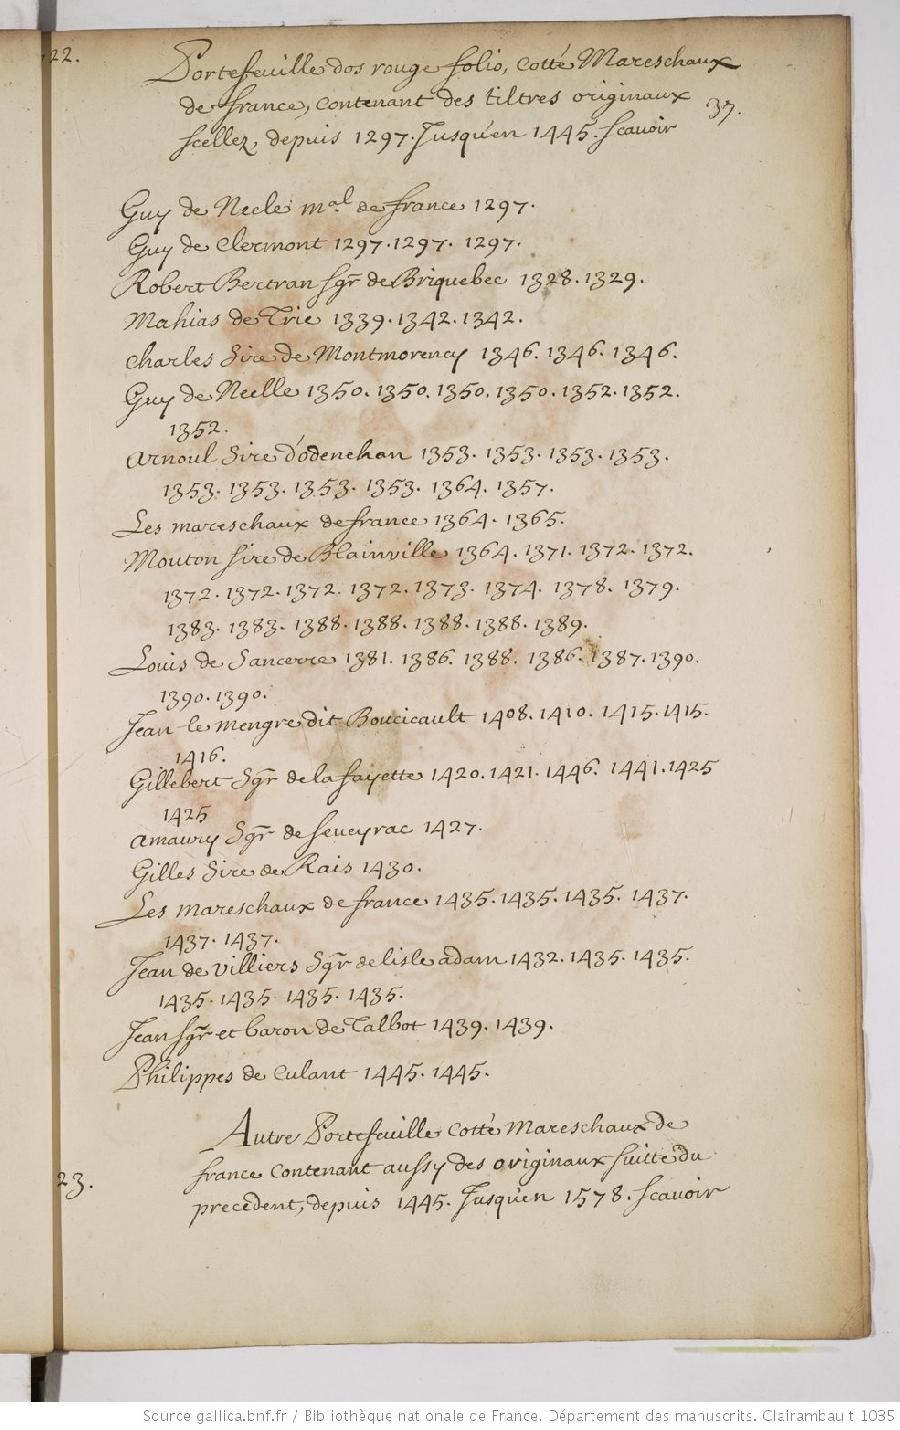 22.
Portefeuille dos rouge folio, cotté Mareschaux
de france, contenant des tiltres originaux
37.
scellez, depuis 1297. Jusqu'en 1445. scauoir
Guy de Necle mal de france 1297.
Guy de Clermont 1297. 1297. 1297.
Robert Bertran sgr de Briquebec 1328. 1329.
Mahias de Trie 1339. 1342. 1342.
Charles Sire de Montmorency 1346. 1346. 1346.
Guy de Neelle 1350. 1350. 1350. 1350. 1352. 1352.
1352.
Arnoul Sire d'odenehan 1353. 1353. 1353. 1353.
1353. 1353. 1353. 1353. 1364. 1357.
Les mareschaux de france 1364. 1365.
Mouton sire de Blainville 1364. 1371. 1372. 1372.
1372. 1372. 1372. 1372. 1373. 1374. 1378. 1379.
1383. 1383. 1388. 1388. 1388. 1388. 1389.
Louis de Sancerre 1381. 1386. 1388. 1386. 1387. 1390.
1390. 1390.
Jean le mengre dit Boucicault 1408. 1410. 1415. 1415.
1416.
Gillebert Sgr de la fayette 1420. 1421. 1446. 1441. 1425
1425
Amaury Sgr de seueyrac 1427.
Gilles Sire de Rais 1430.
Les mareschaux de france 1435. 1435. 1435. 1437.
1437. 1437.
Jean de villiers Sgr de lisle adam 1432. 1435. 1435.
1435. 1435 1435. 1435.
Jean sgr et baron de Talbot 1439. 1439.
Philippes de Culant 1445. 1445.
Autre Portefeuille cotté Mareschaux de
france contenant aussy des originaux suitte du
23.
precedent, depuis 1445. Jusqu'en 1578. scauoir
Source gallica.bnf.fr / Bibliothèque nationale de France. Département des manuscrits. Clairambault 1035